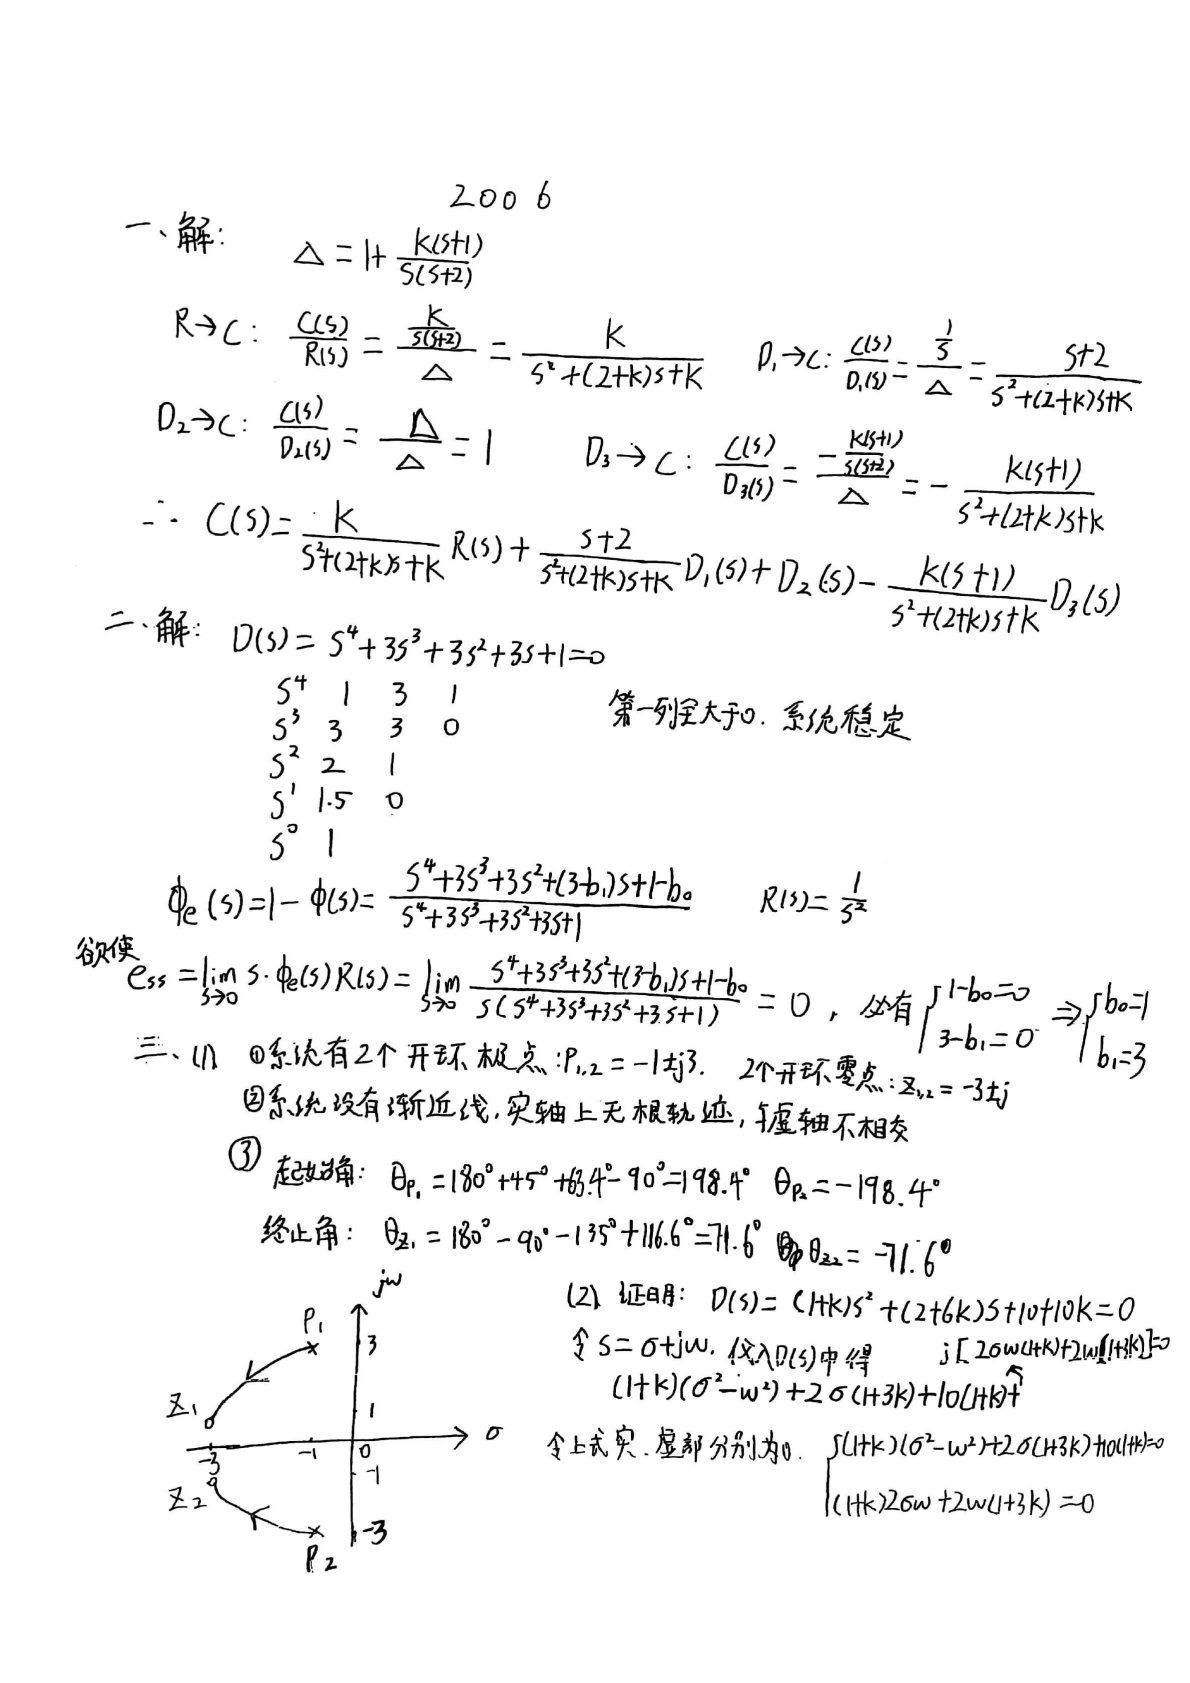 2006
一、解: Δ = 1+ K(s+1)/S(S+2)
R→C: C(s)/R(s) = (K/S(S+2))/Δ = K/(S²+(2+K)s+K) D₁→C: C(s)/D₁(s) = (1/S)/Δ = (S+2)/(S²+(2+K)S+K)
D₂→C: C(s)/D₂(s) = Δ/Δ = 1 D₃→C: C(s)/D₃(s) = (-K(s+1)/S(S+2))/Δ = - K(s+1)/(S²+(2+K)s+K)
∴ C(S) = K/(S²+(2+K)s+K) R(s) + (S+2)/(S²+(2+K)s+K) D₁(s) + D₂(s) - K(S+1)/(S²+(2+K)s+K) D₃(S)
二、解: D(s) = S⁴+3s³+3s²+3s+1=0
S⁴ 1 3 1
S³ 3 3 0 第一列全大于0. 系统稳定
S² 2 1
S¹ 1.5 0
S⁰ 1
Φe(s)=1-Φ(s)= (S⁴+3S³+3S²+(3-b₁)s+1-b₀)/(S⁴+3S³+3S²+3S+1) R(s)= 1/S²
欲使 ess = lim s→0 S·Φe(s)R(s) = lim s→0 (S⁴+3S³+3S²+(3-b₁)s+1-b₀)/(S(S⁴+3S³+3S²+3S+1)) = 0 , 必有 {1-b₀=0 3-b₁=0 ⇒ {b₀=1 b₁=3
三、(1) ①系统有2个开环极点:P₁,₂ = -1±j3. 2个开环零点:Z₁,₂ = -3±j
②系统没有渐近线,实轴上无根轨迹,与虚轴不相交
③ 起始角: θP₁ =180°+45°+63.4°-90°=198.4° θP₂=-198.4°
终止角: θZ₁ = 180°-90°-135°+116.6°=71.6° θZ₂= -71.6°
jw
P₁
3
Z₁
1
-3 -1 0 σ
-1
Z₂
-3
P₂
(2) 证明: D(s)= (1+K)s²+(2+6K)S+10+10K=0
令 S=σ+jw. 代入D(s)中得 j[2σw(1+K)+2w(1+3K)]=0
(1+K)(σ²-w²)+2σ(1+3K)+10(1+K)+
令上式实、虚部分别为0. {(1+K)(σ²-w²)+2σ(1+3K)+10(1+K)=0
(1+K)2σw+2w(1+3K)=0